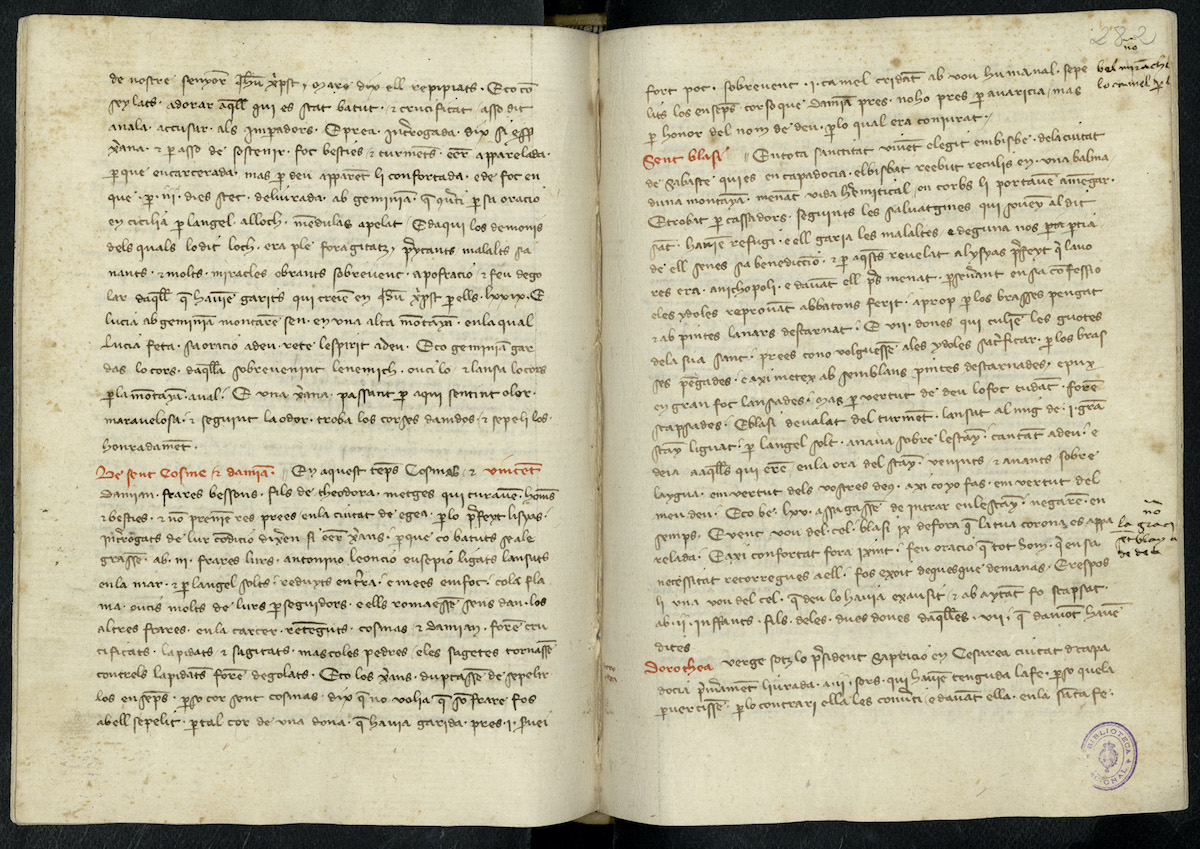 de nostre senyor Jhu xpst, mare dix ell repipiats. E co cō
sey lats. adorar aqll qui es stat batut. & crucificat. asso dit
anala. accusar. als impadors. E presa. introgada. dix si essr
xana. & p asso de sostenir. foc besties & turmēts. eer apparelada.
p que encarcerada. mas p deu apparēt li confortada. e de foc en
que. p. iii. dies stec. desliurada. ab geminia. q ella pr sa oracio
en cicilia p langel. alloch. mēdulas apelat. E daqui los demonis
dels quals lo dit loch. era ple foragitatz, p̄ycants malalts sa
nants. & molts. miracles obrants sobrevenc. apofracio, & feu dego
lar daqll q havie garits qui creiē en Jhu xpst p ells. lxxix. E
lucia ab geminia montare sen. en una alta mōtaya. en la qual
lucia feta. sa oracio a deu. rete lespirit a deu. E co geminia gar
das lo cors. daqlla sobrevenint lenemich. oucis lo & lansa lo cors
p la mōtaya. avall. E una xana. passant p aqui sentint olor.
maravelosa. & seguint la odor. troba los corses damdos. & sepeli los
honradamēt.
De sent Cosme & damia. En aquest temps Cosmas & vincent
Damian. frares bessons. fils de theodora. metges qui curavē. homēs
& besties. & no preniē res prees en la ciutat de egea. p lo pfeyt lisyas.
introgats de lur condicio dixen si eer xans. p que co batuts se ale
grassē. ab. iii. frares lurs. antonino leoncio eusepio ligats lansats
en la mar. & p langel solts. reduyts en tra. e mees en foc. cola fla
ma. oucis molts de lurs p seguidors. e ells romaessē sens dan. los
altres frares. en la carcer. retenguts. cosmas & damian. forē cru
cificats. lapidats & sagitats. mas coles pedres. e les sagetes tornassē
contrels lapidāts forē degolats. E co los xans. duptassē de sepelir
los ensemps. p so cor sent cosmas. dix q no volia q so frare. fos
ab ell sepelit. p tal cor de una dona. q havia garida. pres. i. svei
282
fort poc. sobrevenc. i. camel cridāt ab vou humanal. sepe
lits los ensemps. cor so que damia pres. no ho pres p avaricia, mas
p honor del nom de deu. p lo qual era conjurat.
no
bel miracle
lo camel
Sent blasi En tota sanctitat vivēt elegit em bisbe. de la ciutat
de Sabaste qui es en capadocia. el bisbat reebut reculis en. una balma
duna montaya. menāt vida hermitical, on corbs li portavē amēgar.
E trobat p cassadors. seguints les salvatgines qui sovēx al dit
sāt. haviē refugi. e ell garia les malaltes. e deguna nos ptia
de ell senes sa benediccio. & p aqsts revelat a lysyas pfeyt q lavo
res era. anichopoli. e davāt ell ps menat. p sevāt en sa cofessio
e les ydoles reprovāt ab bastons ferit. aprop p los brasses pengat
& ab pintes lanars descarnat. E vii. dones qui culiē les guotes
de la sua sanc. prees co no volguessē a les ydoles sacrificar. p los bras
ses pēgades. e axi metex ab semblans pintes descarnades. e puix
en gran foc lansades. mas p vertut de deu lo foc tudāt. forē
scapsades. E blasi devalat del turmēt. lansat al mig de. i. grā
stay ligat. p langel solt. anava sobre lestay. cantāt a deu. e
deia a aqlls qui erē en la ora del stay. venints & anants sobre
laygua. em vertut dels vostres deus. axi co yo fas. em vertut del
meu deu. E co be. lxv. assagassē de intrar en lestay. negarē. en
semps. E venc vou del cel. blasi ix defora q la tua corona es appa
relada. E axi confortat fora ixint. feu oracio q tot hom. q en sa
necessitat recorregues a ell. fos exoit de quesque demanas. E respos
li una vou del cel. q deu lo havia exausit. & ab aytāt fo scapsat.
ab. ii. infants. fils. de les. dues dones daqlles. vii. q damūt havē
dites
no
la graci
st blay
de deu
Dorothea verge sotz lo psident Sapricio en Cesarea ciutat d capa
docia pmamēt liurada. a. ii. sors. qui haviē tenguda la fe. p so que la
p vertissē. p lo contrari ella les covti. e davāt ella. en la sāta fe.
BIBLIOTECA NACIONAL